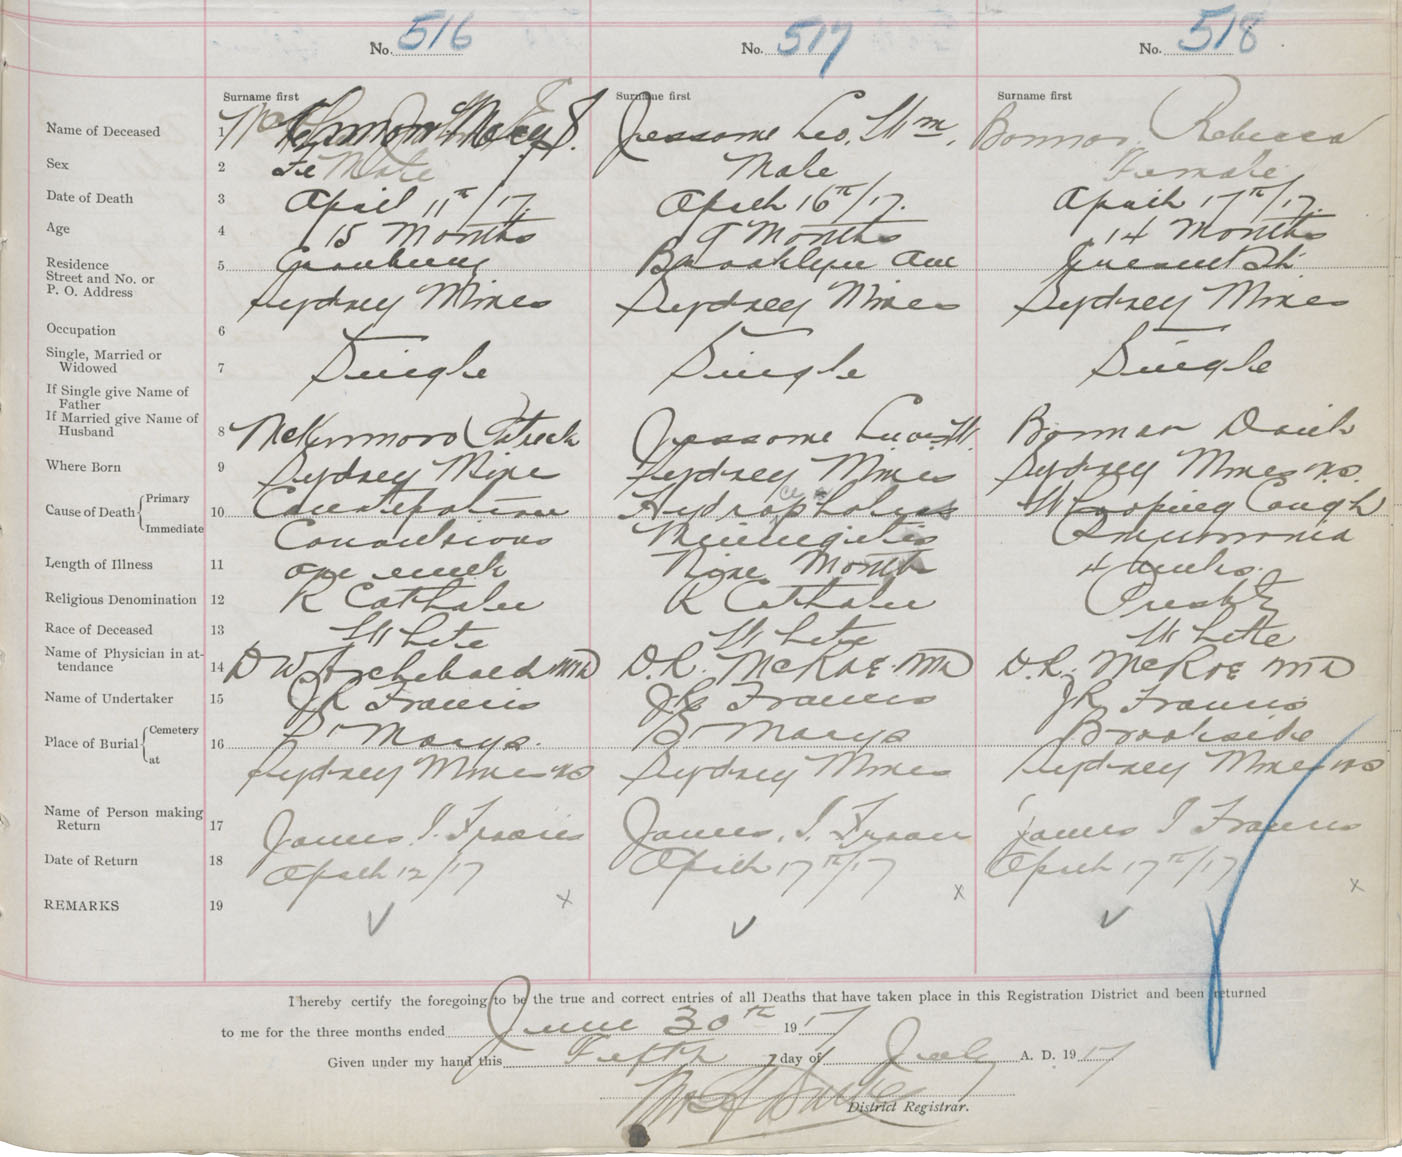 No. 516 No. 517 No. 518
Surname first Surname first Surname first
Name of Deceased 1 Jessome Leo. Wm. Bonnar Rebecca
Sex 2 Fe Male Male Female
Date of Death 3 April 11th/17. April 16th/17. April 17th/17.
Age 4 15 Months 9 Months 14 Months
Residence 5 Brooklyn Ave Crescent St.
Street and No. or
P. O. Address Sydney Mines Sydney Mines Sydney Mines
Occupation 6
Single, Married or
Widowed 7 Single Single Single
If Single give Name of
Father
If Married give Name of
Husband 8 McKinnon Patrick Jessome Bonnar
Where Born 9 Sydney Mine Sydney Mines Sydney Mines N.S.
Cause of Death Primary 10 Whooping Cough
Immediate Convulsions Meningitis Pneumonia
Length of Illness 11 one week Nine Months 4 weeks.
Religious Denomination 12 R Catholic R Catholic Presbty
Race of Deceased 13 White White White
Name of Physician in at-
tendance 14 D W Archibald MD D.R. McRae MD D.R. McRae MD
Name of Undertaker 15 J R Francis J R Francis J R Francis
Place of Burial Cemetery 16 St Marys. St Marys Brookside
at Sydney Mines NS Sydney Mines Sydney Mines NS
Name of Person making
Return 17 James I. Francis James. I. Francis James I Francis
Date of Return 18 April 12/17 April 17th/17 April 17th/17
REMARKS 19
I hereby certify the foregoing to be the true and correct entries of all Deaths that have taken place in this Registration District and been returned
to me for the three months ended June 30th 1917
Given under my hand this Fifth day of July A. D. 1917
District Registrar.